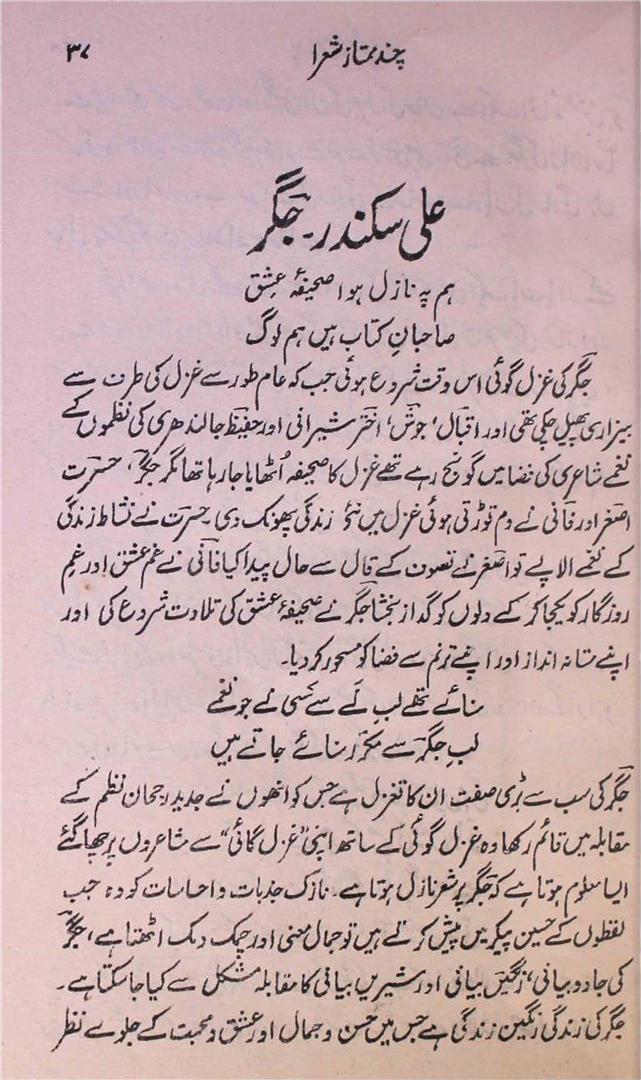 چند ممتاز شعرا
۳۷
علی سکندر۔ جگر
ہم پہ نازل ہوا صحیفۂ عشق
صاحبانِ کتاب ہیں ہم لوگ
جگر کی غزل گوئی اس وقت شروع ہوئی جب کہ عام طور سے غزل کی طرف سے
بیزاری پھیل چکی تھی اور اقبال، جوش، اختر شیرانی اور حفیظ جالندھری کی نظموں کے
نغمے شاعری کی فضا میں گونج رہے تھے غزل کا صحیفہ اُٹھایا جا رہا تھا مگر جگر، حسرت
اصغر اور فانی نے دم توڑتی ہوئی غزل میں نئی زندگی پھونک دی۔ حسرت نے نشاط زندگی
کے نغمے الاپے تو اصغر نے تصوف کے قال سے حال پیدا کیا فانی نے غم عشق اور غمِ
روزگار کو یکجا کر کے دلوں کو گداز بخشا جگر نے صحیفۂ عشق کی تلاوت شروع کی اور
اپنے مستانہ انداز اور اپنے ترنم سے فضا کو مسحور کر دیا۔
سنائے تھے لب نَے سے کسی نے جو نغمے
لبِ جگر سے مکرر سنائے جاتے ہیں
جگر کی سب سے بڑی صفت ان کا تغزل ہے جس کو انھوں نے جدید رجحان نظم کے
مقابلہ میں قائم رکھا وہ غزل گوئی کے ساتھ اپنی "غزل گائی" سے شاعروں پر چھا گئے
ایسا معلوم ہوتا ہے کہ جگر پر شعر نازل ہوتا ہے۔ نازک جذبات و احساسات کو وہ جب
لفظوں کے حسین پیکر میں پیش کرتے ہیں تو جمال معنی اور چمک دمک اٹھتا ہے، جگر
کی جادو بیانی، رنگیں بیانی اور شیریں بیانی کا مقابلہ مشکل سے کیا جا سکتا ہے۔
جگر کی زندگی رنگین زندگی ہے جس میں حسن و جمال اور عشق و محبت کے جلوے نظر